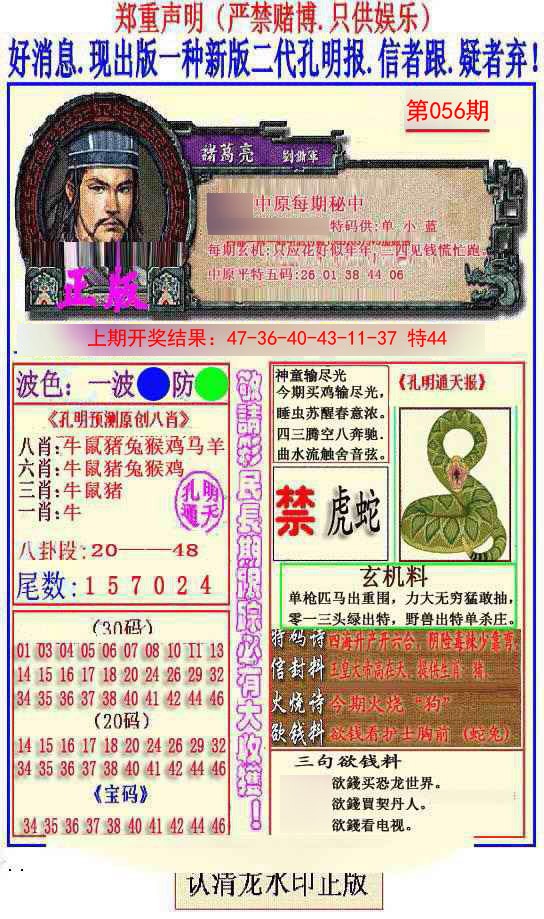 郑重声明（严禁赌博.只供娱乐）
好消息.现出版一种新版二代孔明报.信者跟.疑者弃!
第056期
諸葛亮 劉備軍
中原每期秘中
特码供:单 小 蓝
每期玄机:只应花好似年年,二四见钱慌忙跑。
中原平特五码:26 01 38 44 06
正版
上期开奖结果：47-36-40-43-11-37 特44
波色：一波 防
《孔明预测原创八肖》
八肖:牛鼠猪兔猴鸡马羊
六肖:牛鼠猪兔猴鸡
三肖:牛鼠猪
一肖:牛
孔明通天
八卦段:20——48
尾数:157024
(30码)
01 03 04 05 06 07 08 10 11 13
14 15 16 17 18 20 24 26 29 32
34 35 36 37 38 40 41 42 44 46
(20码)
14 15 16 17 18 20 24 26 29 32
34 35 36 37 38 40 41 42 44 46
《宝码》
34 35 36 37 38 40 41 42 44 46
敬請彩民長期跟踪必有大收獲!
神童输尽光
今期买鸡输尽光，
睡虫苏醒春意浓。
四三腾空八奔驰.
曲水流触舍音弦。
《孔明通天报》
禁 虎蛇
玄机料
单枪匹马出重围，力大无穷猛敢抽，
零一三头绿出特，野兽出特单杀庄。
特码诗 四海升产开六合，阴险毒辣少靠旁；
信封料 玉皇大帝高在天，提供生肖：猪、
火烧诗 今期火烧“狗”
欲钱料 欲钱看护士胸前（蛇兔）
三句欲钱料
欲錢买恐龙世界。
欲錢買契丹人。
欲錢看电视。
认清龙水印正版